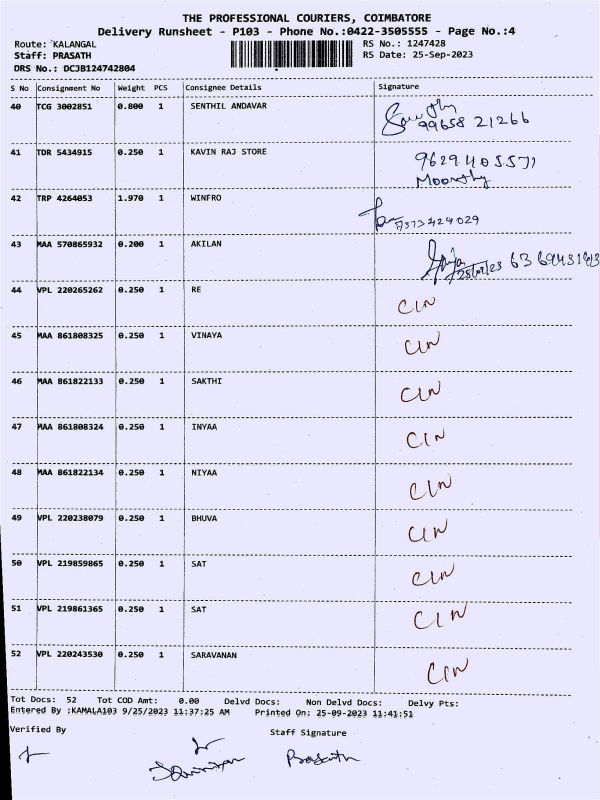 THE PROFESSIONAL COURIERS, COIMBATORE
Delivery Runsheet - P103 - Phone No.:0422-3505555 - Page No.:4
Route: KALANGAL RS No.: 1247428
Staff: PRASATH RS Date: 25-Sep-2023
DRS No.: DCJB124742804
S No Consignment No Weight PCS Consignee Details Signature
40 TCG 3002851 0.800 1 SENTHIL ANDAVAR
99658 21266
41 TDR 5434915 0.250 1 KAVIN RAJ STORE 9629405571
Moorthy
42 TRP 4264053 1.970 1 WINFRO
7373424029
43 MAA 570865932 0.200 1 AKILAN
25/09/23
44 VPL 220265262 0.250 1 RE CIN
45 MAA 861808325 0.250 1 VINAYA CIN
46 MAA 861822133 0.250 1 SAKTHI CIN
47 MAA 861808324 0.250 1 INYAA CIN
48 MAA 861822134 0.250 1 NIYAA CIN
49 VPL 220238079 0.250 1 BHUVA CIN
50 VPL 219859865 0.250 1 SAT CIN
51 VPL 219861365 0.250 1 SAT CIN
52 VPL 220243530 0.250 1 SARAVANAN CIN
Tot Docs: 52 Tot COD Amt: 0.00 Delvd Docs: Non Delvd Docs: Delvy Pts:
Entered By :KAMALA103 9/25/2023 11:37:25 AM Printed On: 25-09-2023 11:41:51
Verified By Staff Signature
Prasanth